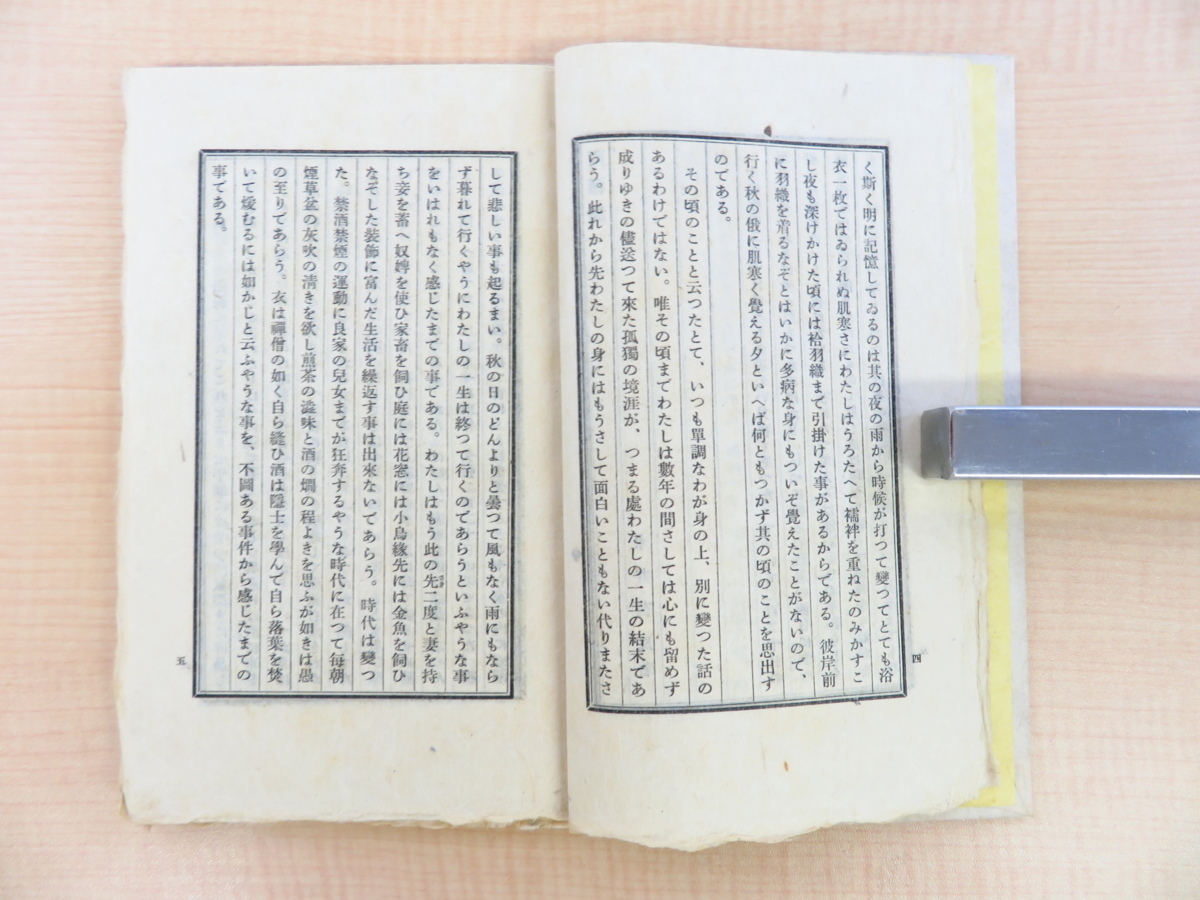 く斯く明に記憶してゐるのは其の夜の雨から時候が打つて變つてとても浴
衣一枚ではゐられぬ肌寒さにわたしはうろたへて襦袢を重ねたのみかすこ
し夜も深けかけた頃には袷羽織まで引掛けた事があるからである。彼岸前
に羽織を着るなぞとはいかに多病な身にもついぞ覺えたことがないので、
行く秋の俄に肌寒く覺える夕といへば何ともつかず其の頃のことを思出す
のである。
その頃のことと云つたとて、いつも單調なわが身の上、別に變つた話の
あるわけではない。唯その頃までわたしは數年の間さしては心にも留めず
成りゆきの儘送つて來た孤獨の境涯が、つまる處わたしの一生の結末であ
らう。此れから先わたしの身にはもうさして面白いこともない代りまたさ
四
して悲しい事も起るまい。秋の日のどんよりと曇つて風もなく雨にもなら
ず暮れて行くやうにわたしの一生は終つて行くのであらうといふやうな事
をいはれもなく感じたまでの事である。わたしはもう此の先二度と妻を持
ち妾を蓄へ奴婢を使ひ家畜を飼ひ庭には花窓には小鳥緣先には金魚を飼ひ
なぞした裝飾に富んだ生活を繰返す事は出來ないであらう。時代は變つ
た。禁酒禁煙の運動に良家の兒女までが狂奔するやうな時代に在つて毎朝
煙草盆の灰吹の清きを欲し煎茶の澁味と酒の燗の程よきを思ふが如きは愚
の至りであらう。衣は禪僧の如く自ら縫ひ酒は隱士を學んで自ら落葉を焚
いて煖むるには如かじと云ふやうな事を、不圖ある事件から感じたまでの
事である。
五